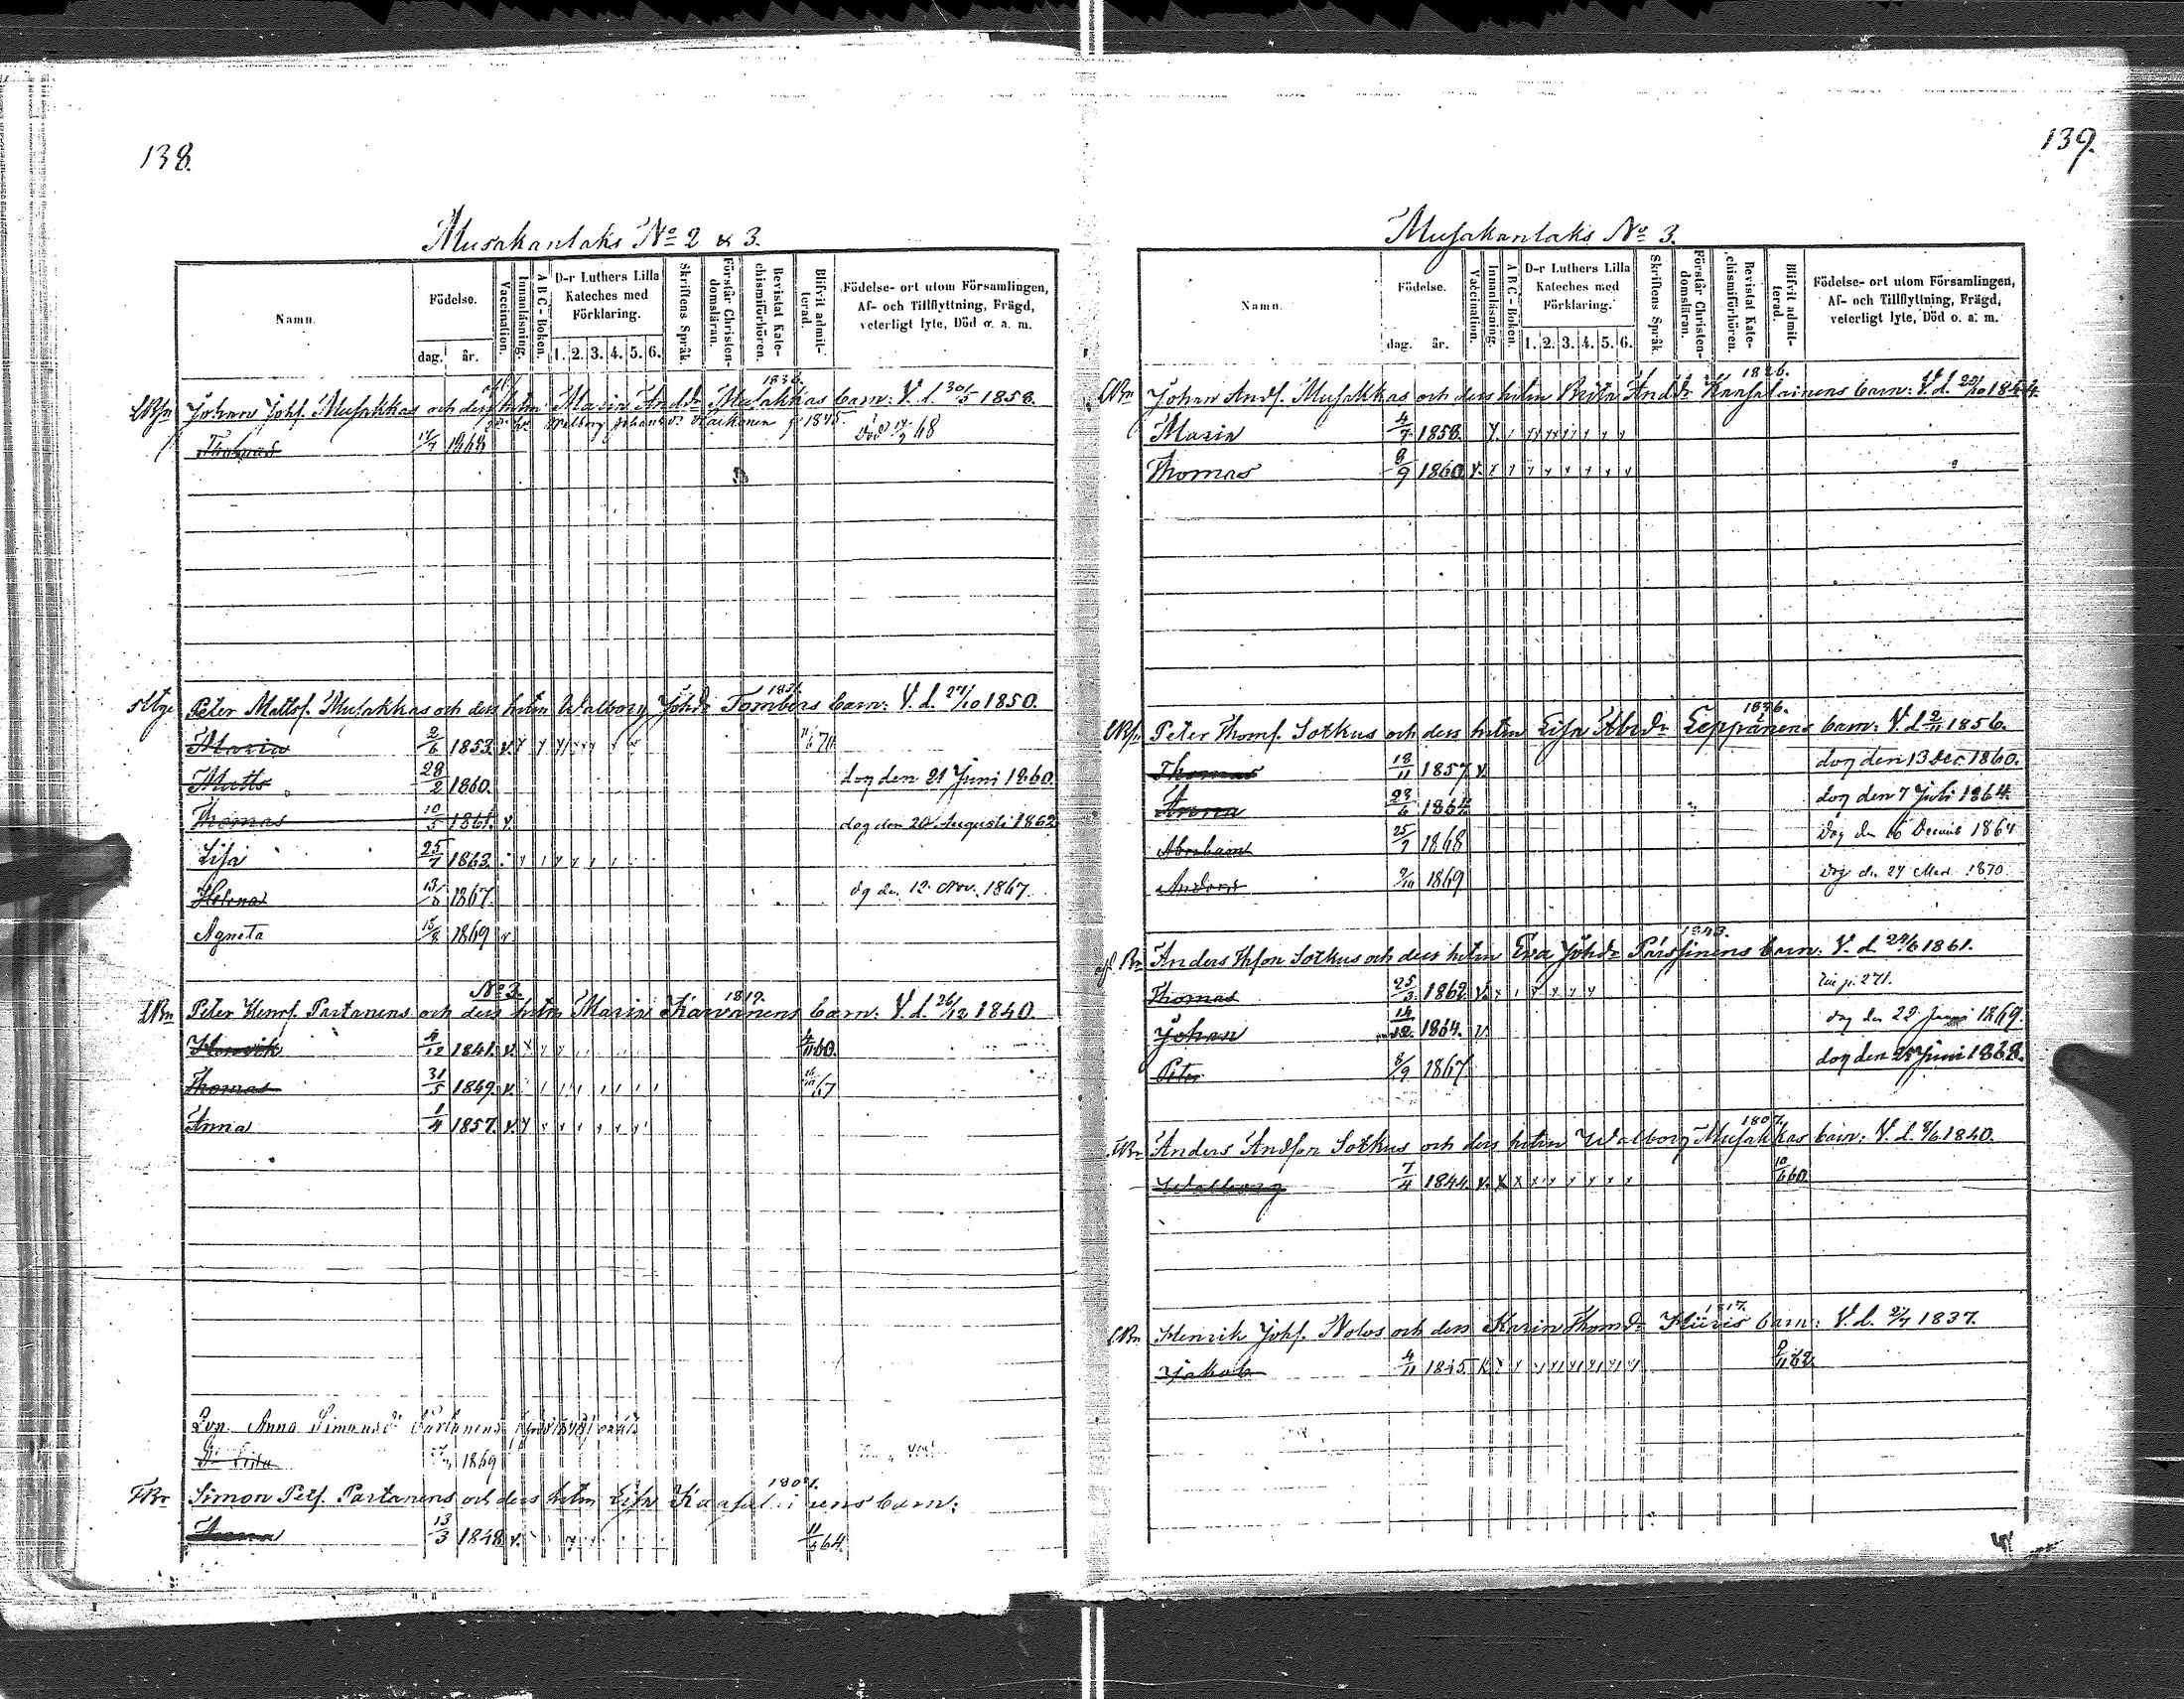 138.
Musakanlaks No 2 & 3.
Namn.
Födelse.
dag. år.
Vaccination.
Innanläsning.
A B C - Boken.
D-r Luthers Lilla Kateches med Förklaring.
1. 2. 3. 4. 5. 6.
Skriftens Språk.
Förstår Christendomsläran.
Bevistat Katechismiförhören.
Blifvit admitterad.
Födelse- ort utom Församlingen, Af- och Tillflyttning, Frägd, veterligt lyte, Död o. a. m.
1836.
Johan Johs. Musakkas och dess hstru Maria Andrdr Musakkas barn: V. d. 30/5 1858.
1845.
Thomas 1868 död 68
1831.
Peter Matts. Musakkas och dess hstru Walborg Johdr Tombers barn: V. d. 27/10 1850.
Maria 2/6 1853. v. 71
Matts 28/2 1860. dog den 21 Juni 1860.
Thomas 10/5 1861. v. dog den 20 Augusti 1862
Lisa 25/7 1863.
Helena 13/8 1867. dg dn. 12. Nov. 1867.
Agneta 15/8 1869 v
No 3.
1819.
Peter Henrs. Partanens och dess hstru Maria Karvanens barn. V. d. 26/12 1840.
Henrik 4/12 1841. v. 60.
Thomas 31/5 1849. v. 67
Anna 1/4 1857. v.
Anna Simonsdr Partanens
1869
1804.
Simon Pets. Partanens och dess hstru Lisa Kaasalainens barn:
Anna 13/3 1848 v. 64.
139.
Musakanlaks No 3.
Namn.
Födelse.
dag. år.
Vaccination.
Innanläsning.
A B C - Boken.
D-r Luthers Lilla Kateches med Förklaring.
1. 2. 3. 4. 5. 6.
Skriftens Språk.
Förstår Christendomsläran.
Bevistat Katechismiförhören.
Blifvit admitterad.
Födelse- ort utom Församlingen, Af- och Tillflyttning, Frägd, veterligt lyte, Död o. a. m.
1826.
Johan Ands. Musakkas och dess hstru Brita Anddr Kaasalainens barn: V. d.
Maria 4/7 1858.
Thomas 8/9 1860 v.
1836.
Peter Thoms. Sotkus och dess hstru Lisa Abrdr Leppänens barn: V. d. 2/11 1856.
Thomas 18/11 1857 v. dog den 13 Dec. 1860.
Anna 28/6 1864 dog den 7 Juli 1864.
Abraham 25/7 1868 dog den 16 Decemb 1864
Anders 9/10 1869 dog dn 24 1870
1843.
Anders Thsson Sotkus och dess hstru Eva Johdr Pärssinens barn: V. d. 24/6 1861.
Thomas 25/3 1862. v. p. 271.
Johan 14/12 1864. v. dog den 22 Juni 1869.
Peter 8/9 1867 dog den 25 Juni 1868.
1807.
Anders Andson Sotkus och dess hstru Walborg Musakkas barn: V. d. 8/6 1840.
Walborg 7/4 1844. v. 10/6 60.
1817.
Henrik Johs. Nolos och dess Karin Thomdr Hiiris barn: V. d. 1837.
Jakob 4/11 1845. 62